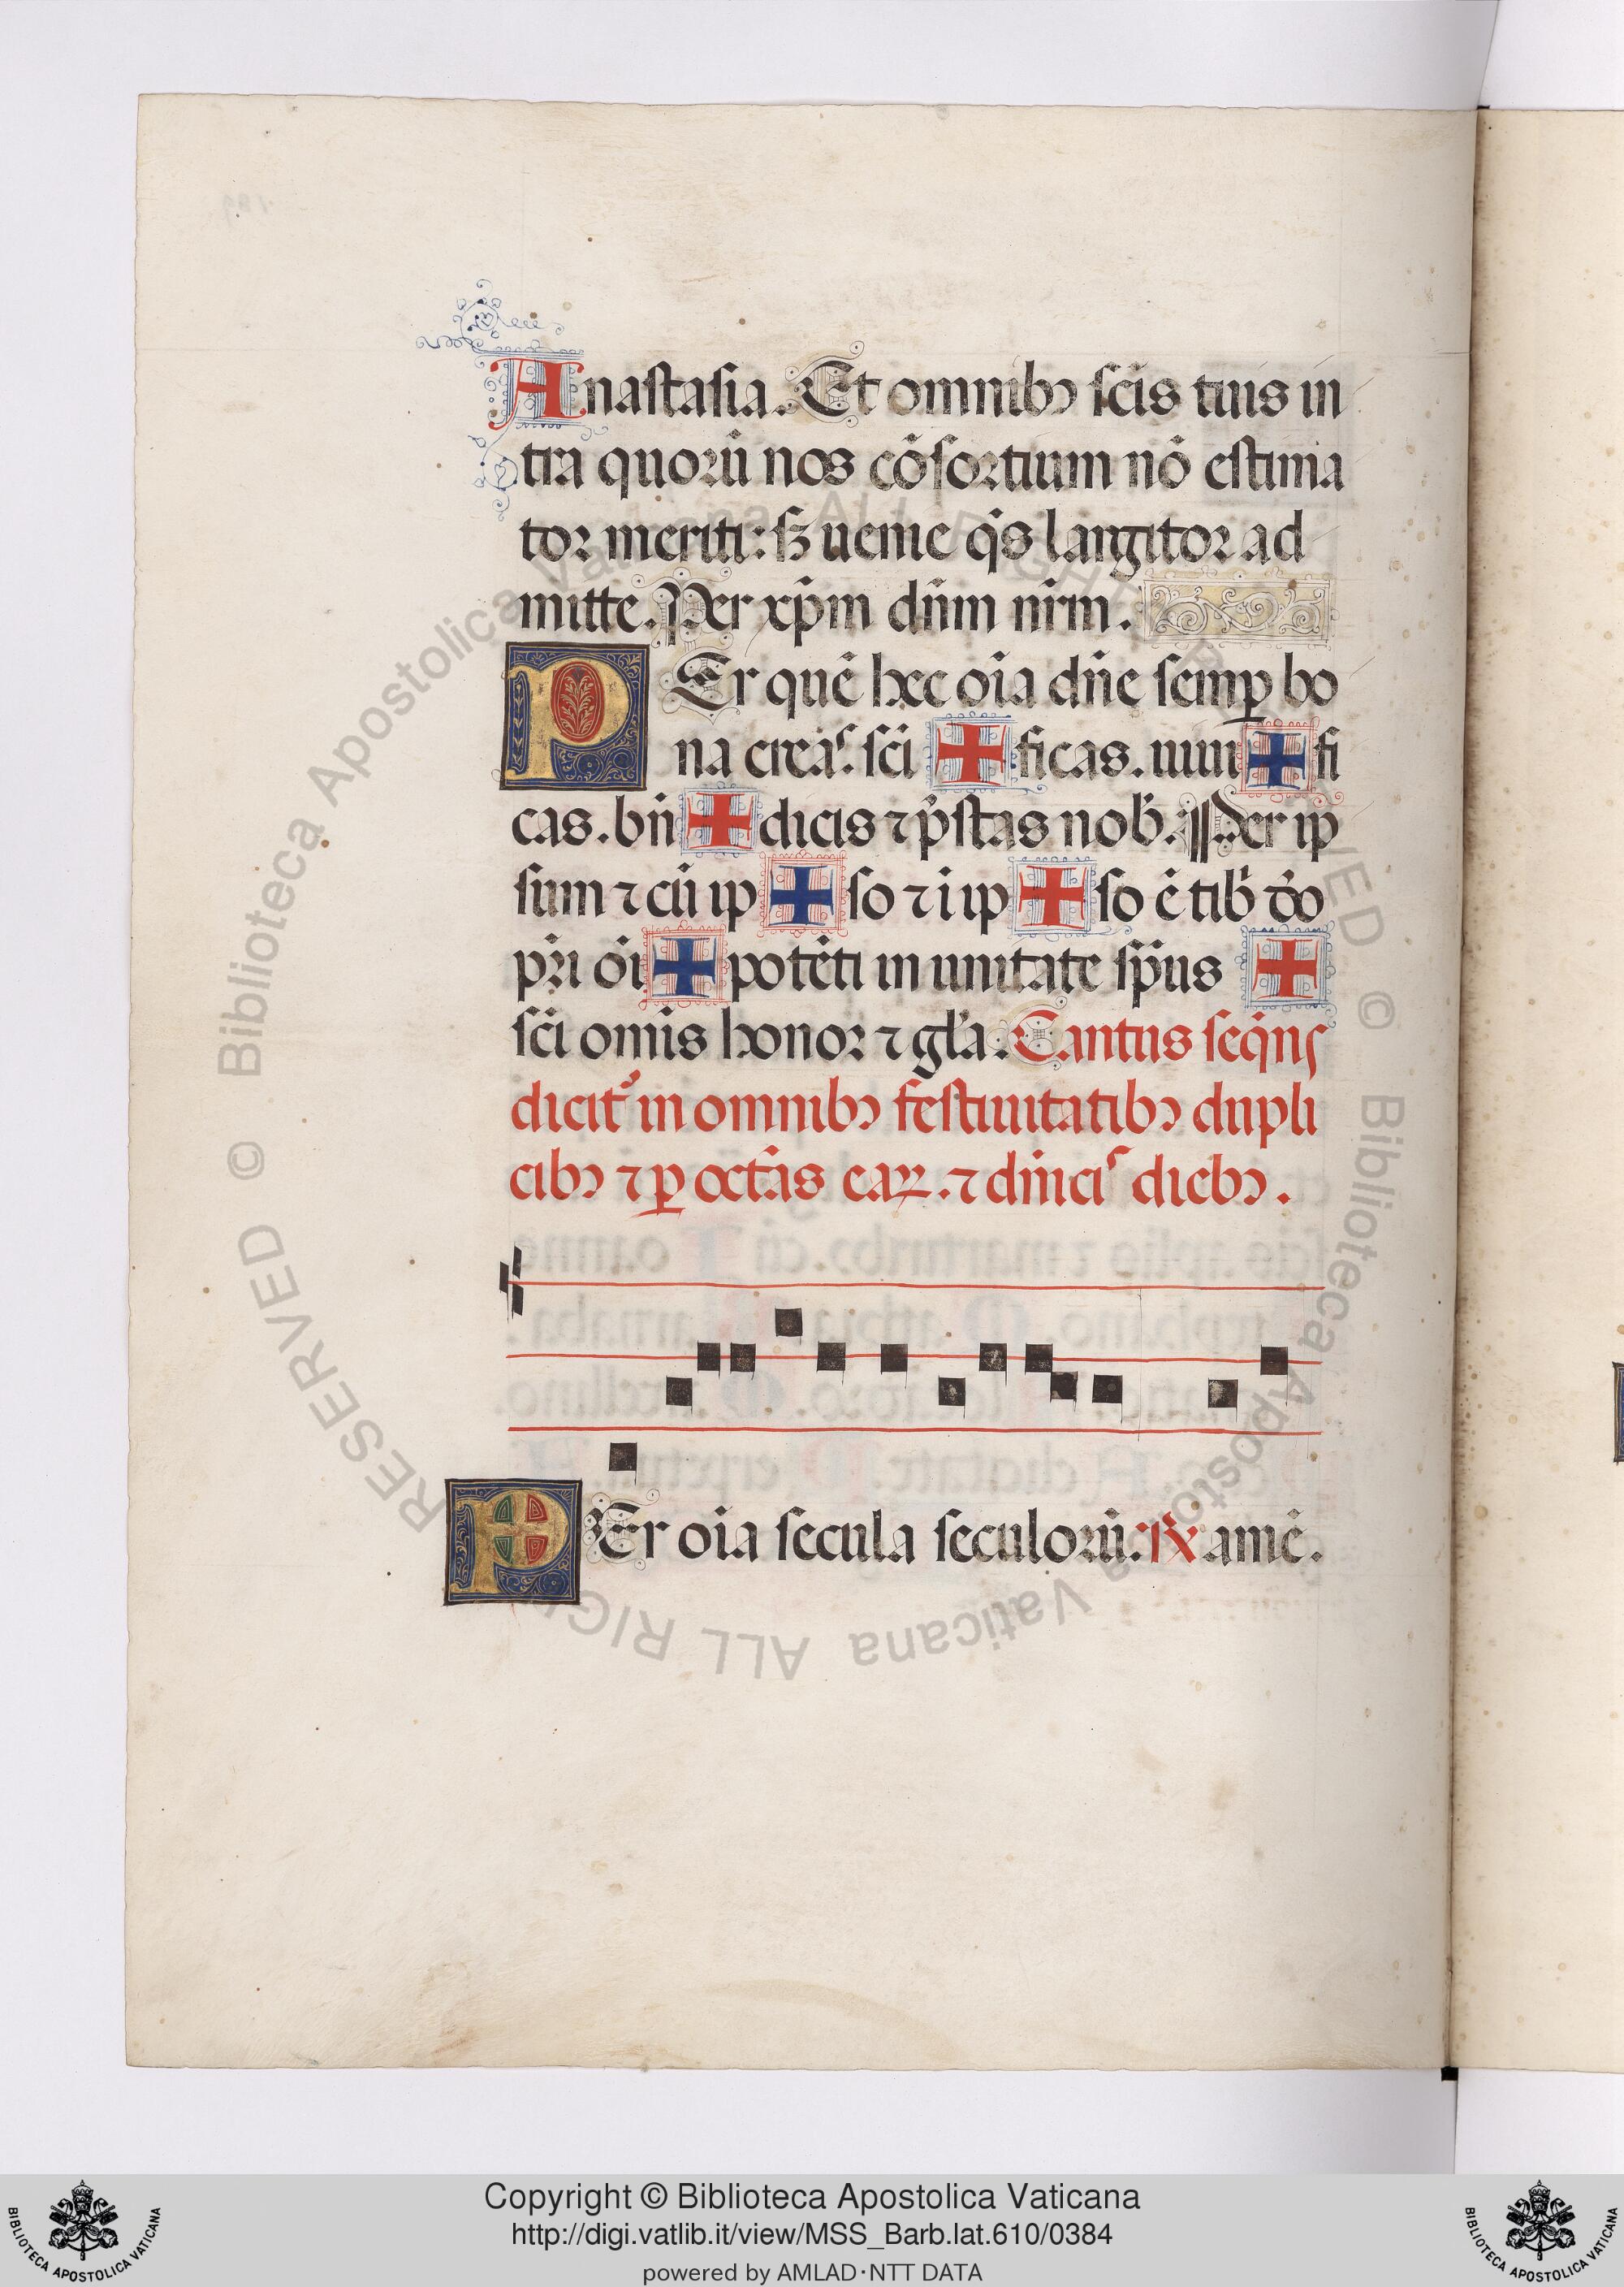 Anastasia. Et omnibꝫ scı̄s tuis in
tra quorū nos cōsortium nō estima
tor meriti: sꝫ uenie q̄s largitor ad
mitte. Per xp̄m dn̄m nr̄m.
PEr quē hec oīa dn̄e semꝑ bo
na creas. scı̄ ✠ ficas. uiui ✠ fi
cas. bn̄ ✠ dicis ⁊ p̄stas nob̄. Per ip
sum ⁊ cū ip ✠ so ⁊ ī ip ✠ so ē tib̄ dō
pr̄i oī ✠ potēti in unitate sp̄us ✠
scı̄ om̄is honor ⁊ gl̄a. Cantus seq̄ns
dicit᷑ in omnibꝫ festiuitatibꝫ dupli
cibꝫ ⁊ ꝑ octā̄s eaꝝ. ⁊ dn̄icis diebꝫ.
PEr oīa secula seculorū. ℟ amē.
© Biblioteca Apostolica Vaticana ALL RIGHTS RESERVED © Biblioteca Apostolica Vaticana ALL RIGHTS RESERVED
Copyright © Biblioteca Apostolica Vaticana
http://digi.vatlib.it/view/MSS_Barb.lat.610/0384
powered by AMLAD·NTT DATA
BIBLIOTECA APOSTOLICA VATICANA
BIBLIOTECA APOSTOLICA VATICANA